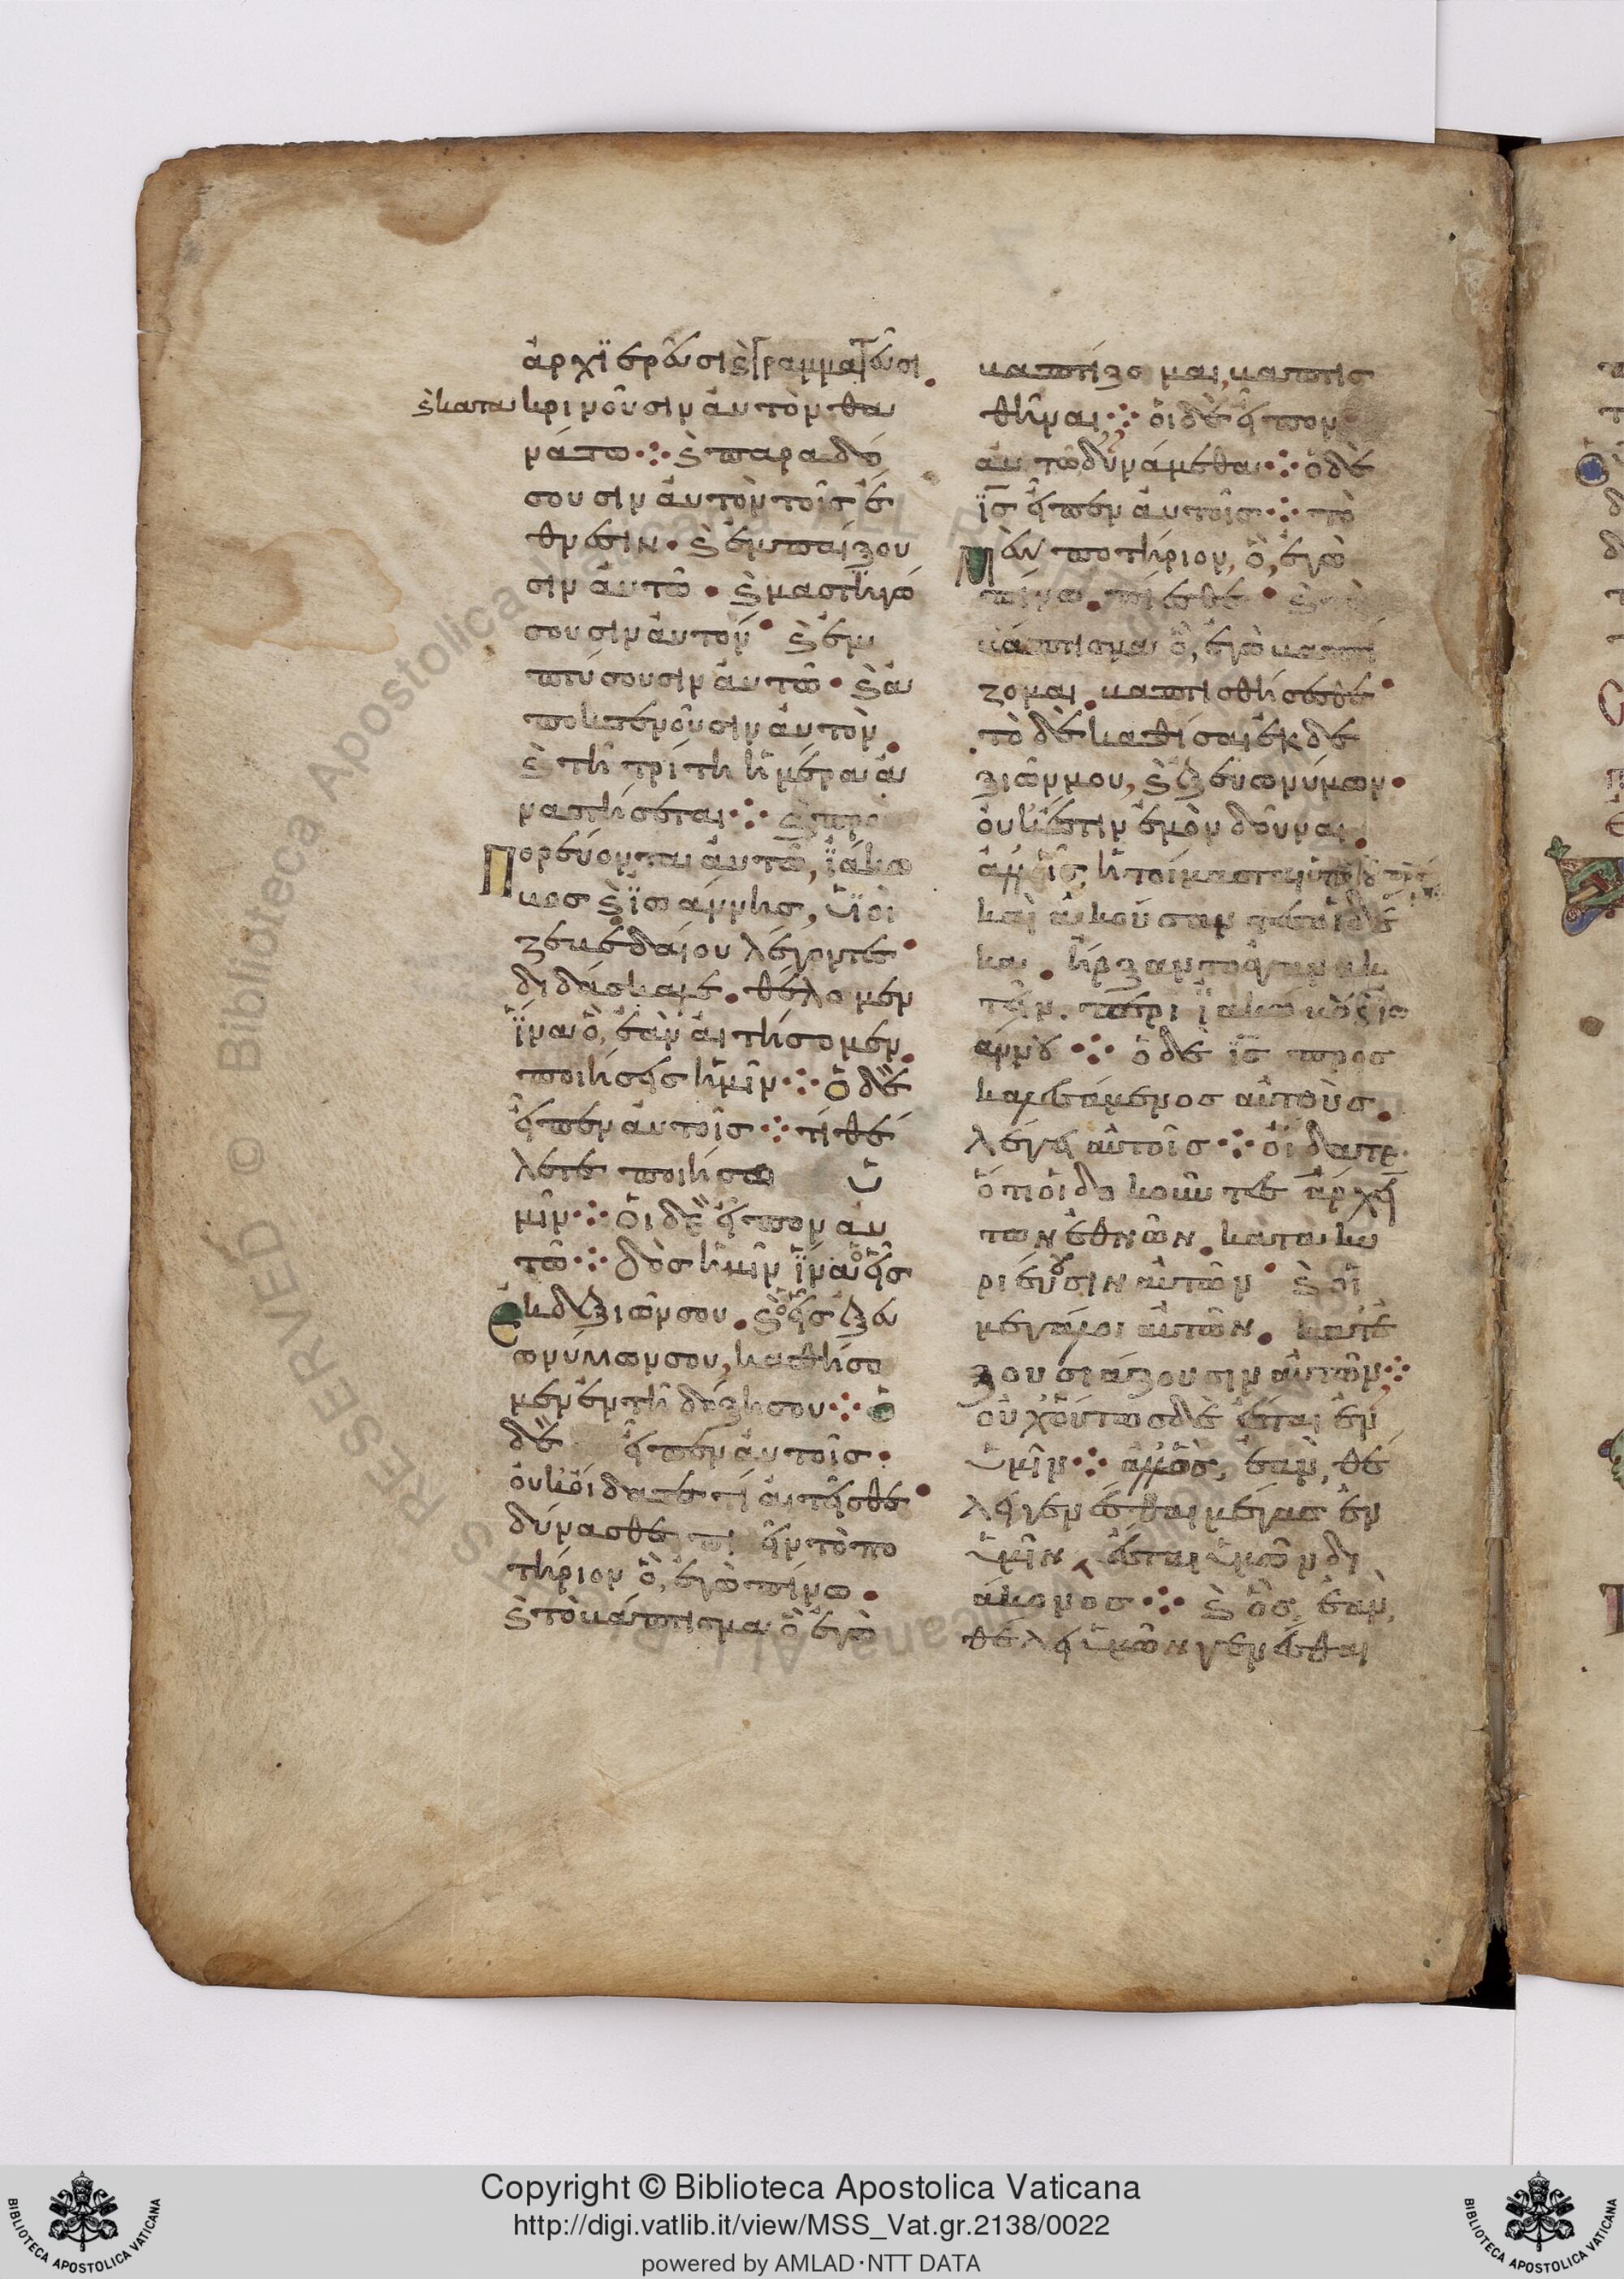 ἀρχϊερεῦσι ϗ γραμματεῦσι
ϗ κατα κρινοῦσιν αὐτὸν θα
νάτω ⁘ ϗ παραδώ
σουσιν αὐτὸν τοῖς ἔ
θνεσιν · ϗ ἐμπαίξου
σιν αὐτῶ · ϗ μαστϊγώ
σουσιν αὐτόν · ϗ ἐμ
πτύσουσιν αὐτῶ · ϗ ἀ
ποκτενοῦσιν αὐτὸν.
ϗ τῆ τρίτη ἡμέρα ἀ
ναστήσεται ⁘ ϗ προ
Πορεύονται αὐτῶ, ϊάκω
βος ϗ ϊωάννης, ὑϊοὶ
ζεβεδαίου λέγοντες ·
διδάσκαλε. θέλομεν
ἵνα ὃ, ἐὰν αἰτήσομεν.
ποιήσης ἡμῖν ⁘ ὁ δὲ
εἶπεν αὐτοῖς ⁘ τί θέ
λετε ποιήσω ὑ
μῖν ⁘ οἱ δὲ εἶπον αυ
τῶ ⁘ δὸς ἡμῖν ἵνα εἷς
Ἐκ δεξιῶν σου. ϗ εἷς ἐξ ἐυ
ωνύμων σου, καθήσο
μεν ἐν τῆ δόξη σου ⁘ ὁ
δὲ εἶπεν αὐτοῖς ·
οὐκ οἴδατε τί αἰτεῖσθε ·
δύνασθε πιεῖν τὸ πο
τήριον ὃ, ἐγὼ πίνω.
ϗ τὸ βάπτισμα ὃ ἐγὼ
βαπτίζομαι, βαπτισ
θῆναι ⁘ οἱ δὲ εἶπον
αὐτῶ, δυνάμεθα ⁘ ὁ δὲ
ις εἶπεν αὐτοῖς ⁘ τὸ
Μὲν ποτήριον, ὃ, ἐγὼ
πίνω. πίεσθε · ϗ τὸ
βάπτισμα ὃ, ἐγὼ βαπτί
ζομαι. βαπτισθήσεσθε ·
τὸ δὲ καθίσαι ἐκ δε
ξιῶν μου, ϗ ἐξ ἐυωνύμων.
οὐκ ἔστιν ἐμὸν δοῦναι.
ἀλλ' οἷς ἡτοίμασται
καὶ ἀκούσαντες οἱ δέ
κα. ἤρξαντο ἀγανακ
τεῖν. περὶ ϊακώβου ϗ ϊω
άννου ⁘ ὁ δὲ ις προς
καλεσάμενος αὐτοὺς.
λέγει αὐτοῖς ⁘ οἴδατε.
ὅτι οἱ δοκοῦντες ἄρχειν
των ἐθνῶν. κατακυ
ριεύουσιν αὐτῶν · ϗ οἱ
μεγάλοι αὐτῶν. κατε
ξουσιάζουσιν αὐτῶν ⁘
οὐχ οὕτως δὲ ἔσται ἐν
ὑμῖν ⁘ ἀλλ' ὃς, ἐὰν, θέ
λει γενέσθαι μέγας ἐν
ὑμῖν, ἔσται ὑμῶν δι
άκονος ⁘ ϗ ὃς, ἐὰν,
θέλει ὑμῶν γενέσθαι
Copyright © Biblioteca Apostolica Vaticana
http://digi.vatlib.it/view/MSS_Vat.gr.2138/0022
powered by AMLAD·NTT DATA